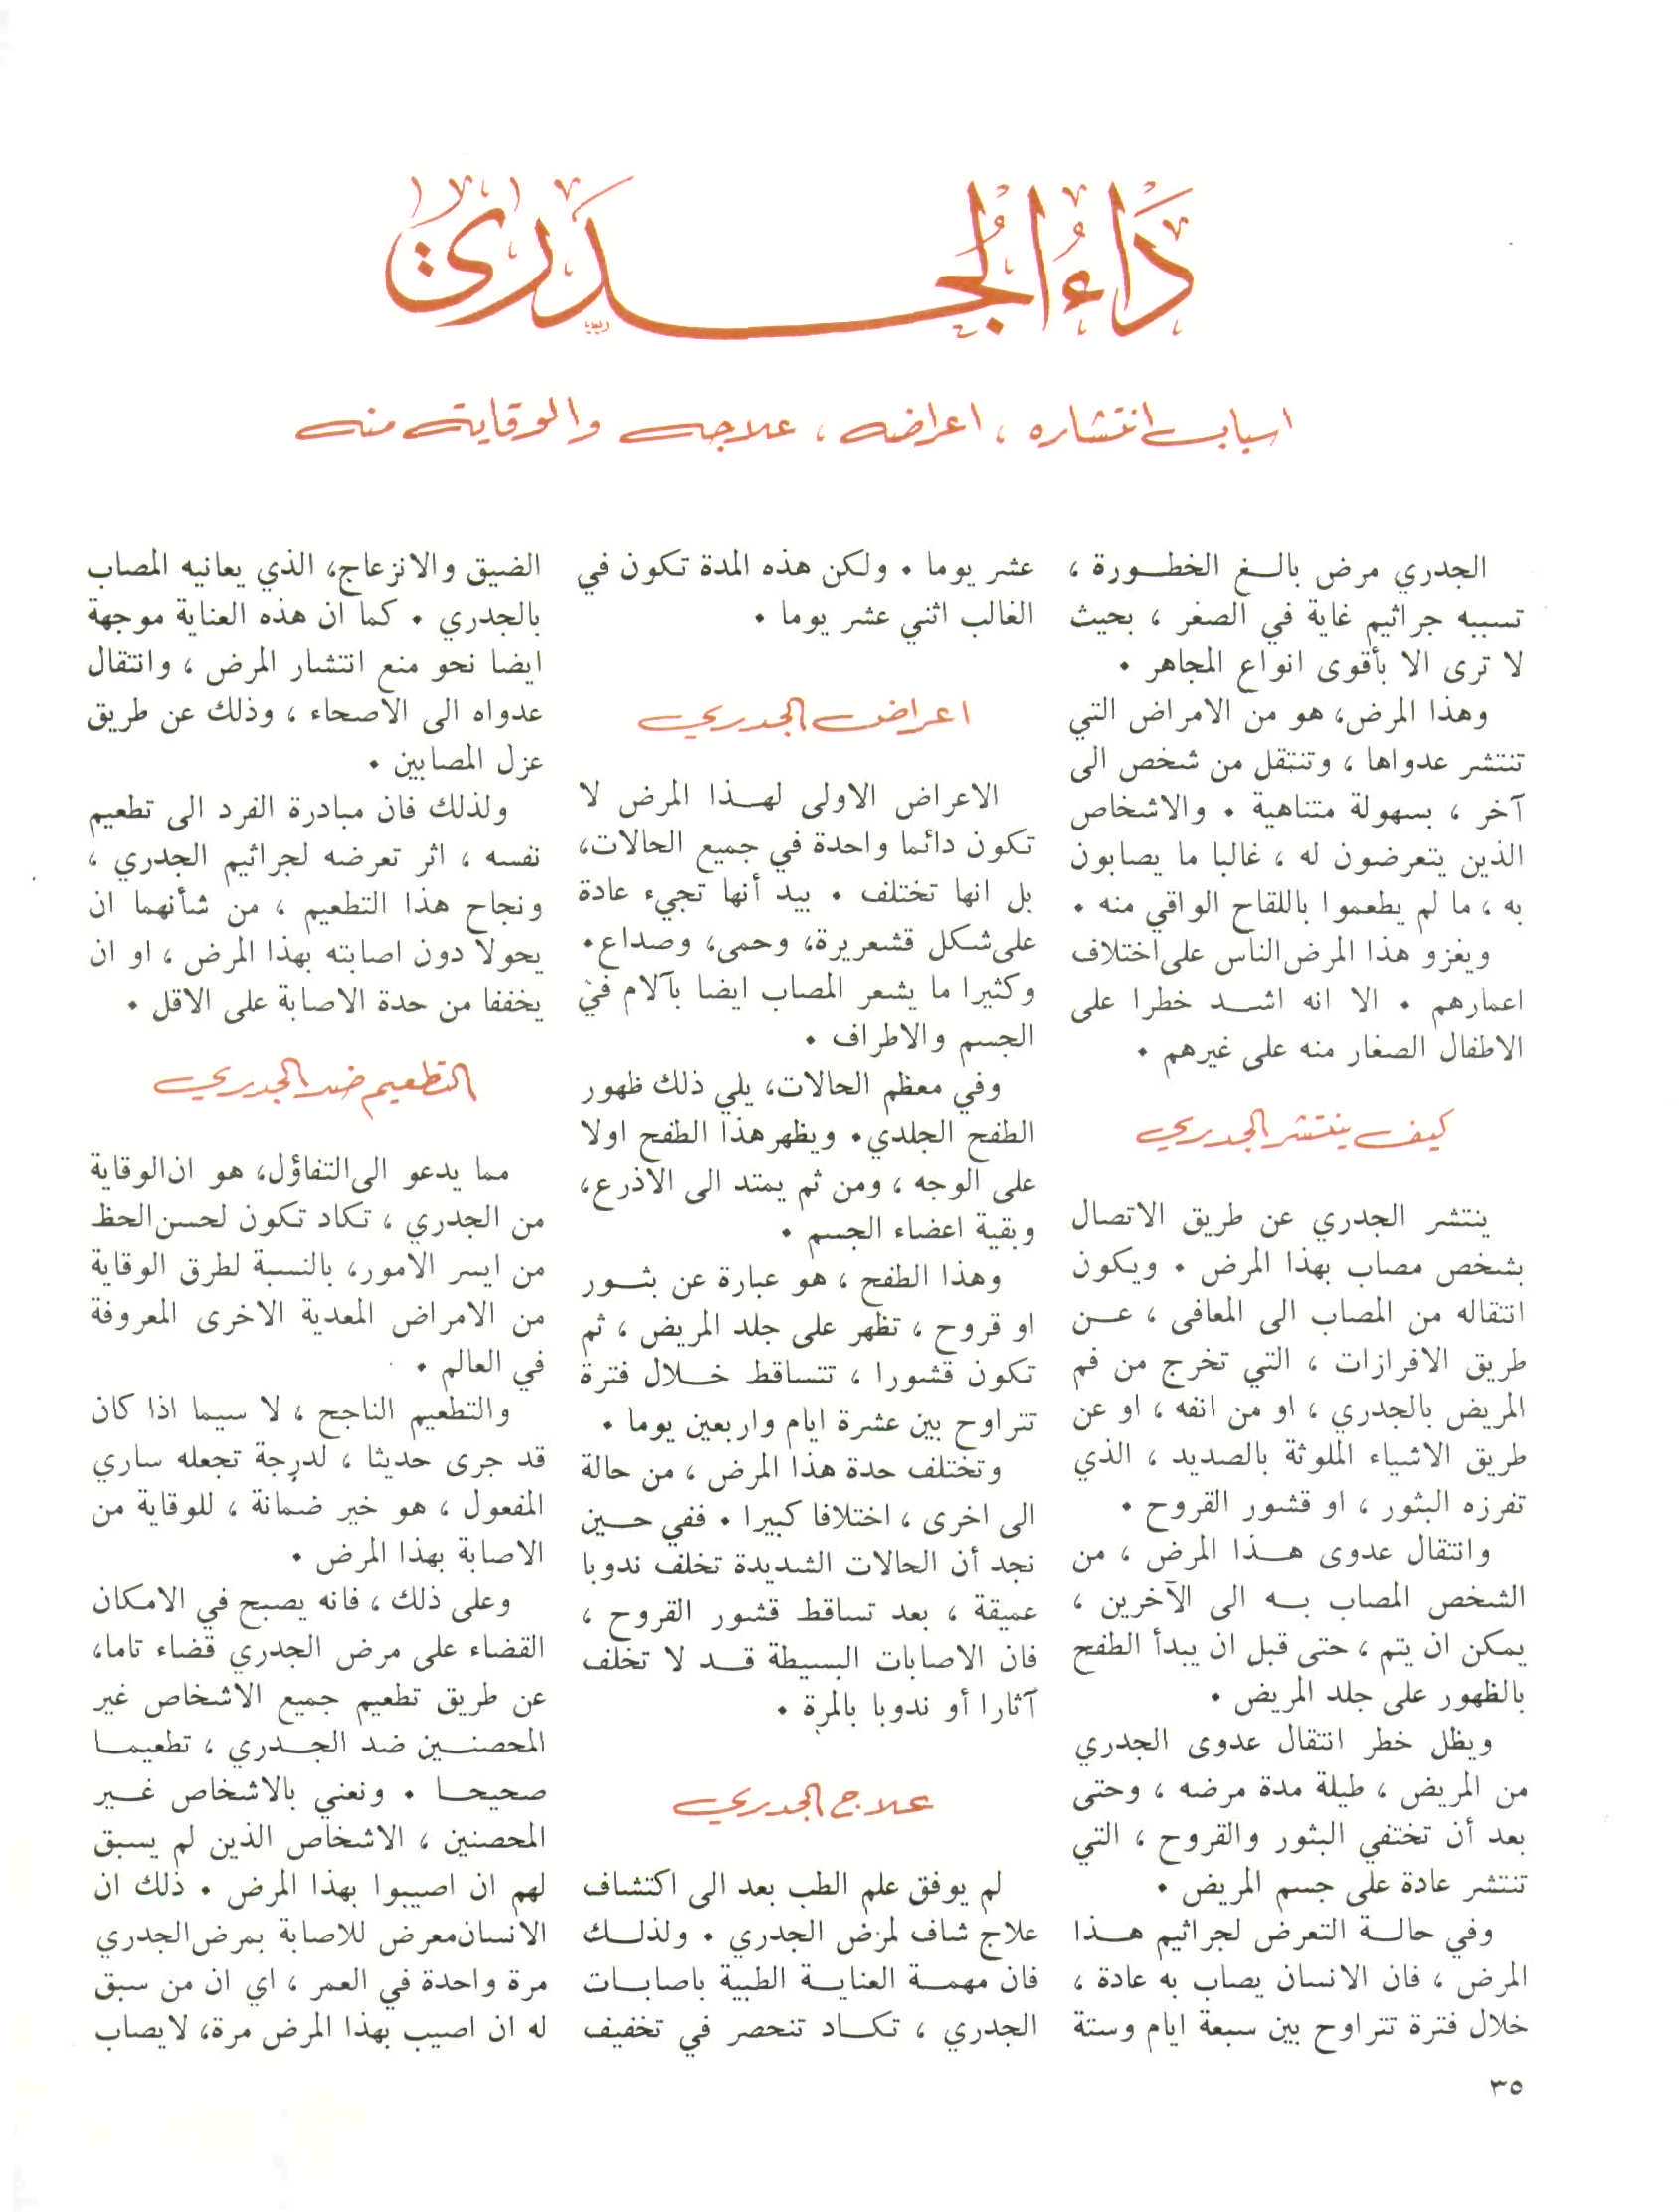 دَاءُ الجُدَرِيّ
اسباب انتشاره ، اعراضه ، علاجه والوقاية منه
الجدري مرض بالغ الخطورة ،
تسببه جراثيم غاية في الصغر ، بحيث
لا ترى الا بأقوى انواع المجاهر .
وهذا المرض، هو من الامراض التي
تنتشر عدواها ، وتنتقل من شخص الى
آخر ، بسهولة متناهية . والاشخاص
الذين يتعرضون له ، غالبا ما يصابون
به ، ما لم يطعموا باللقاح الواقي منه .
ويغزو هذا المرض الناس على اختلاف
اعمارهم . الا انه اشد خطرا على
الاطفال الصغار منه على غيرهم .
كيف ينتشر الجدري
ينتشر الجدري عن طريق الاتصال
بشخص مصاب بهذا المرض . ويكون
انتقاله من المصاب الى المعافى ، عن
طريق الافرازات ، التي تخرج من فم
المريض بالجدري ، او من انفه ، او عن
طريق الاشياء الملوثة بالصديد ، الذي
تفرزه البثور ، او قشور القروح .
وانتقال عدوى هذا المرض ، من
الشخص المصاب به الى الآخرين ،
يمكن ان يتم ، حتى قبل ان يبدأ الطفح
بالظهور على جلد المريض .
ويظل خطر انتقال عدوى الجدري
من المريض ، طيلة مدة مرضه ، وحتى
بعد أن تختفي البثور والقروح ، التي
تنتشر عادة على جسم المريض .
وفي حالة التعرض لجراثيم هذا
المرض ، فان الانسان يصاب به عادة ،
خلال فترة تتراوح بين سبعة ايام وستة
عشر يوما . ولكن هذه المدة تكون في
الغالب اثني عشر يوما .
اعراض الجدري
الاعراض الاولى لهذا المرض لا
تكون دائما واحدة في جميع الحالات،
بل انها تختلف . بيد أنها تجيء عادة
على شكل قشعريرة، وحمى، وصداع.
وكثيرا ما يشعر المصاب ايضا بآلام في
الجسم والاطراف .
وفي معظم الحالات، يلي ذلك ظهور
الطفح الجلدي. ويظهر هذا الطفح اولا
على الوجه ، ومن ثم يمتد الى الاذرع،
وبقية اعضاء الجسم .
وهذا الطفح ، هو عبارة عن بثور
او قروح ، تظهر على جلد المريض ، ثم
تكون قشورا ، تتساقط خلال فترة
تتراوح بين عشرة ايام واربعين يوما .
وتختلف حدة هذا المرض ، من حالة
الى اخرى ، اختلافا كبيرا . ففي حين
نجد أن الحالات الشديدة تخلف ندوبا
عميقة ، بعد تساقط قشور القروح ،
فان الاصابات البسيطة قد لا تخلف
آثارا أو ندوبا بالمرة .
علاج الجدري
لم يوفق علم الطب بعد الى اكتشاف
علاج شاف لمرض الجدري . ولذلك
فان مهمة العناية الطبية باصابات
الجدري ، تكاد تنحصر في تخفيف
الضيق والانزعاج، الذي يعانيه المصاب
بالجدري . كما ان هذه العناية موجهة
ايضا نحو منع انتشار المرض ، وانتقال
عدواه الى الاصحاء ، وذلك عن طريق
عزل المصابين .
ولذلك فان مبادرة الفرد الى تطعيم
نفسه ، اثر تعرضه لجراثيم الجدري ،
ونجاح هذا التطعيم ، من شأنهما ان
يحولا دون اصابته بهذا المرض ، او ان
يخففا من حدة الاصابة على الاقل .
التطعيم ضد الجدري
مما يدعو الى التفاؤل، هو ان الوقاية
من الجدري ، تكاد تكون لحسن الحظ
من ايسر الامور، بالنسبة لطرق الوقاية
من الامراض المعدية الاخرى المعروفة
في العالم .
والتطعيم الناجح ، لا سيما اذا كان
قد جرى حديثا ، لدرجة تجعله ساري
المفعول ، هو خير ضمانة ، للوقاية من
الاصابة بهذا المرض .
وعلى ذلك ، فانه يصبح في الامكان
القضاء على مرض الجدري قضاء تاما،
عن طريق تطعيم جميع الاشخاص غير
المحصنين ضد الجدري ، تطعيما
صحيحا . ونعني بالاشخاص غير
المحصنين ، الاشخاص الذين لم يسبق
لهم ان اصيبوا بهذا المرض . ذلك ان
الانسان معرض للاصابة بمرض الجدري
مرة واحدة في العمر ، اي ان من سبق
له ان اصيب بهذا المرض مرة، لا يصاب
٣٥